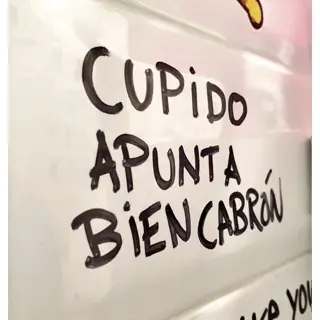 CUPIDO
APUNTA
BIEN CABRÓN
YOU